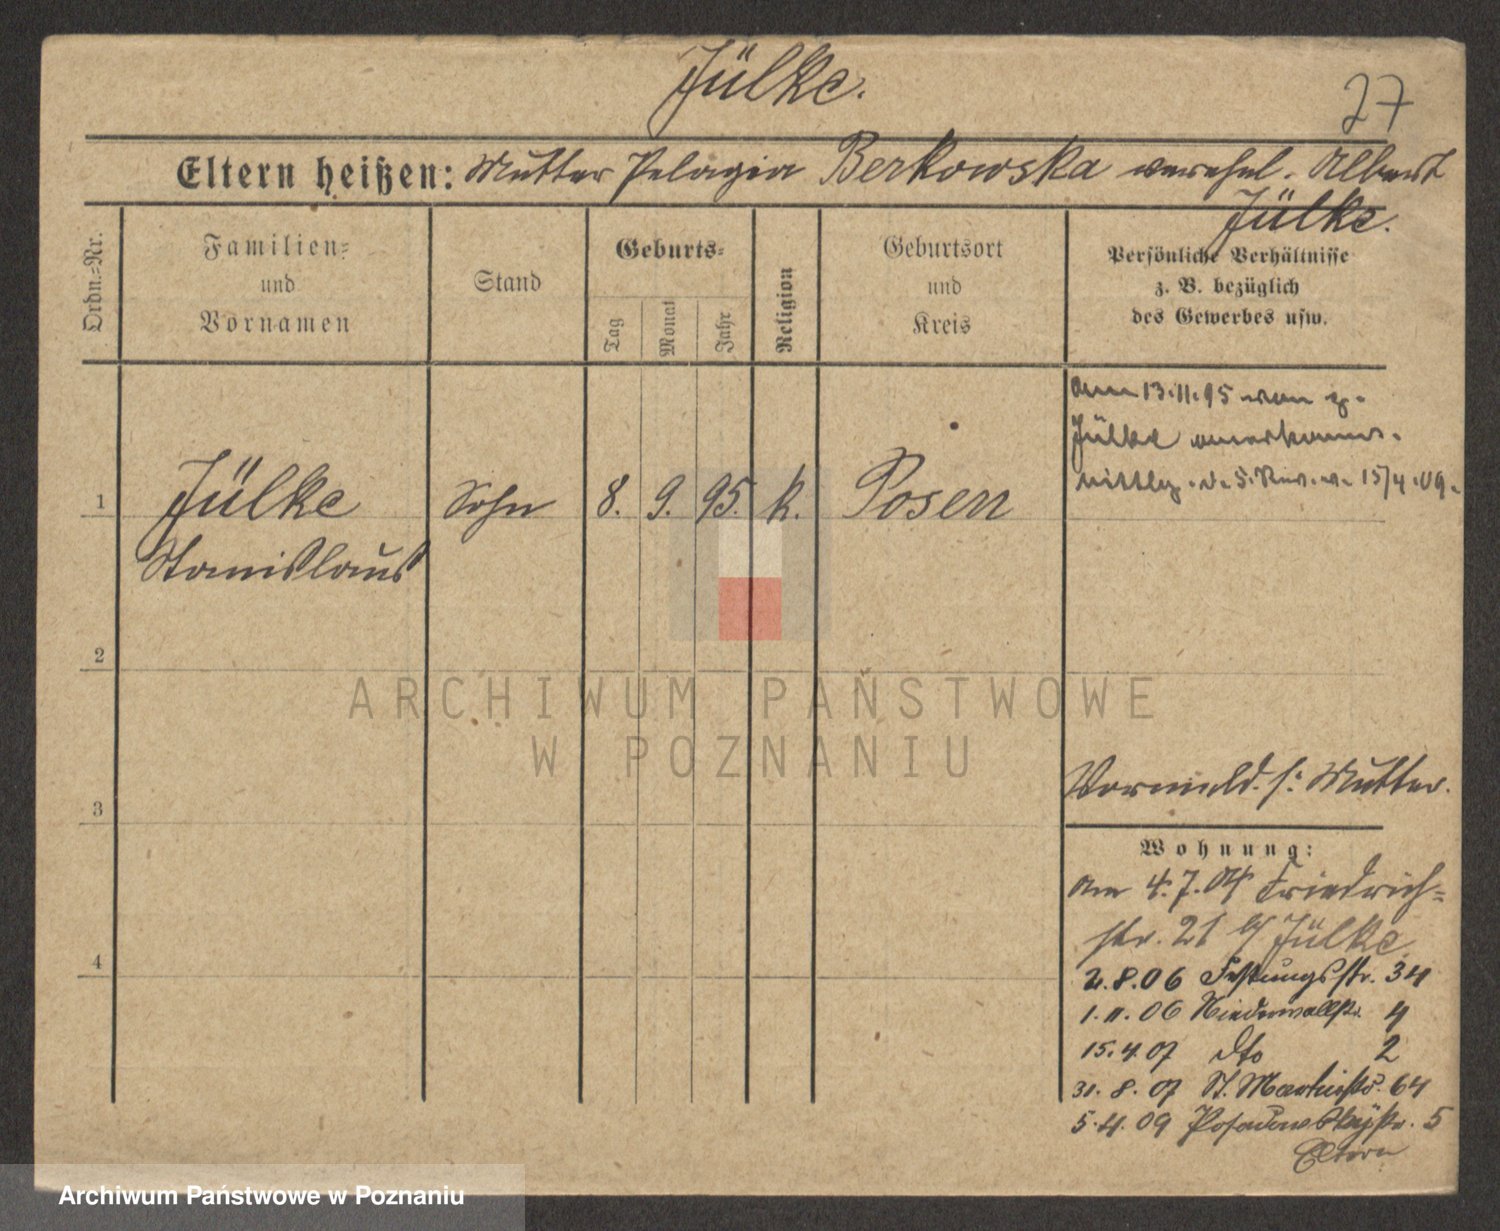 Jülke.
27
Eltern heißen: Mutter Pelagia Berkowska verehel. Albert
Jülke.
Ordn.-Nr.
Familien-
und
Vornamen
Stand
Geburts-
Tag
Monat
Jahr
Religion
Geburtsort
und
Kreis
Persönliche Verhältnisse
z. B. bezüglich
des Gewerbes usw.
am 13.11.95 von
Jülke anerkannt.
15/4.09.
1
Jülke
Sohn
8.
9.
95.
k.
Posen
Stanislaus
2
ARCHIWUM PAŃSTWOWE
W POZNANIU
3
Vormeld. s. Mutter.
Wohnung:
Am 4.7.04 Friedrich-
str. 21 b/ Jülke
2.8.06 Festungsstr. 34
1.11.06 Niederwallstr. 4
15.4.07 dto 2
31.8.07 St. Martinstr. 64
5.4.09 Posadowskystr. 5
Eltern
4
Archiwum Państwowe w Poznaniu